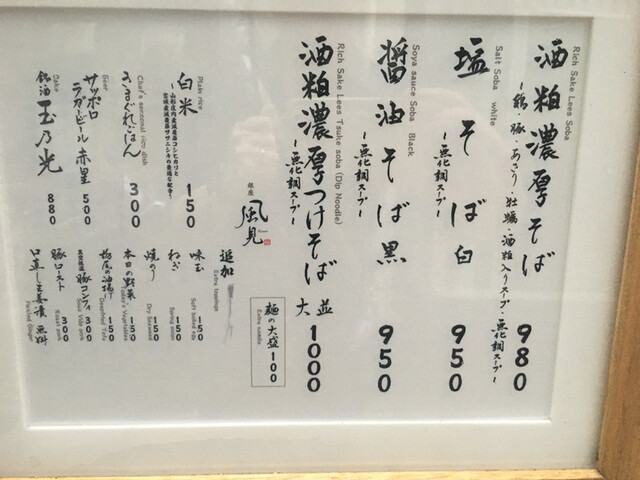 Rich Sake Lees Soba
酒粕濃厚そば 980
~鶏・豚・あさり・牡蠣・酒粕入りスープ・無化調スープ~
Salt Soba white
塩そば 白 950
~無化調スープ~
Soya sauce Soba Black
醤油そば 黒 950
~無化調スープ~
Rich Sake Lees Tsuke soba (Dip Noodle)
酒粕濃厚つけそば 並大 1000
~無化調スープ~
麺の大盛 100
Extra noodle
銀座
風見
Plain rice
白米 150
~山形庄内産減農薬コシヒカリと
宮城産減農薬ササニシキの黄金な配合~
Chef's seasonal rice dish
きまぐれごはん 300
Beer
サッポロ
ラガービール 赤星 500
Sake
銘酒 玉乃光 880
追加
Extra toppings
味玉 150
Soft boiled egg
ねぎ 150
Spring onion
焼のり 150
Dry Seaweed
本日の野菜 150
Today's Vegetables
栃尾の油揚げ 150
Deepfried Tofu
真空低温 豚コンフィ 300
Sous Vide pork
豚ロースト 300
Roast pork
口直し生姜漬 無料
Pickled Ginger